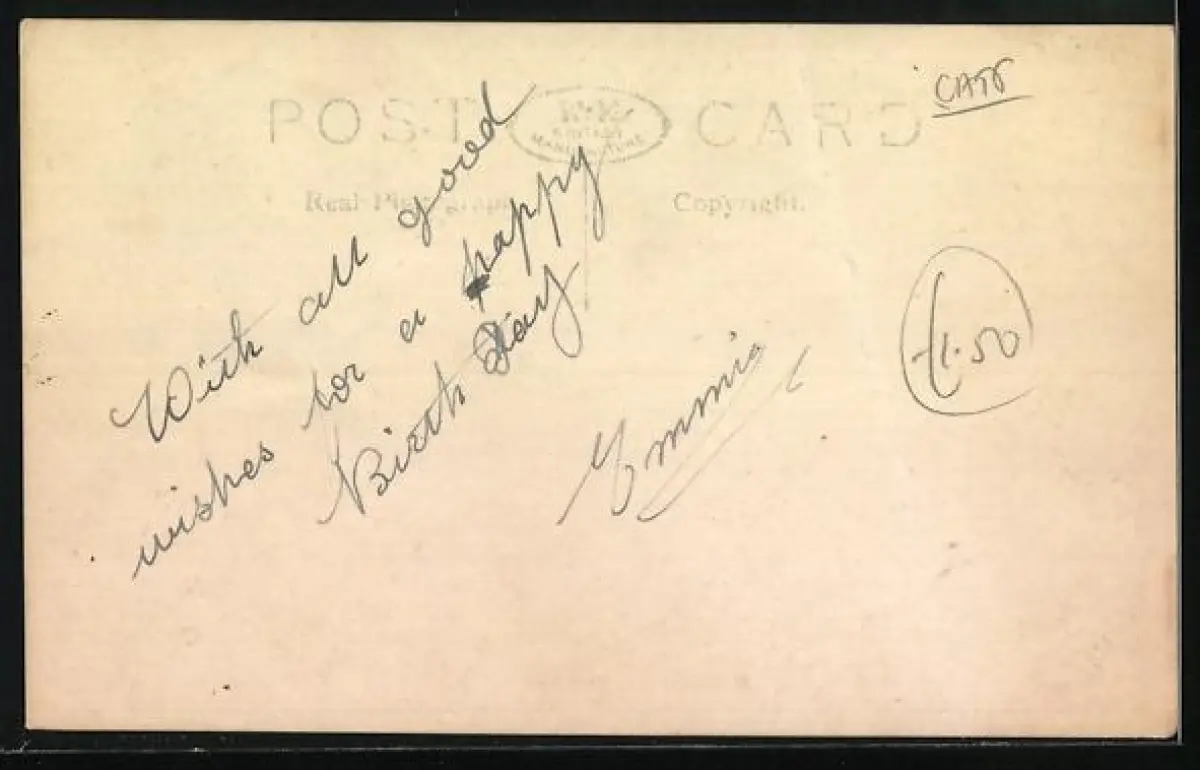 POST CARD
BRITISH
MANUFACTURE
Real Photograph
Copyright.
CATS
£1.50
With all good
wishes for a happy
Birth Day
Emmie